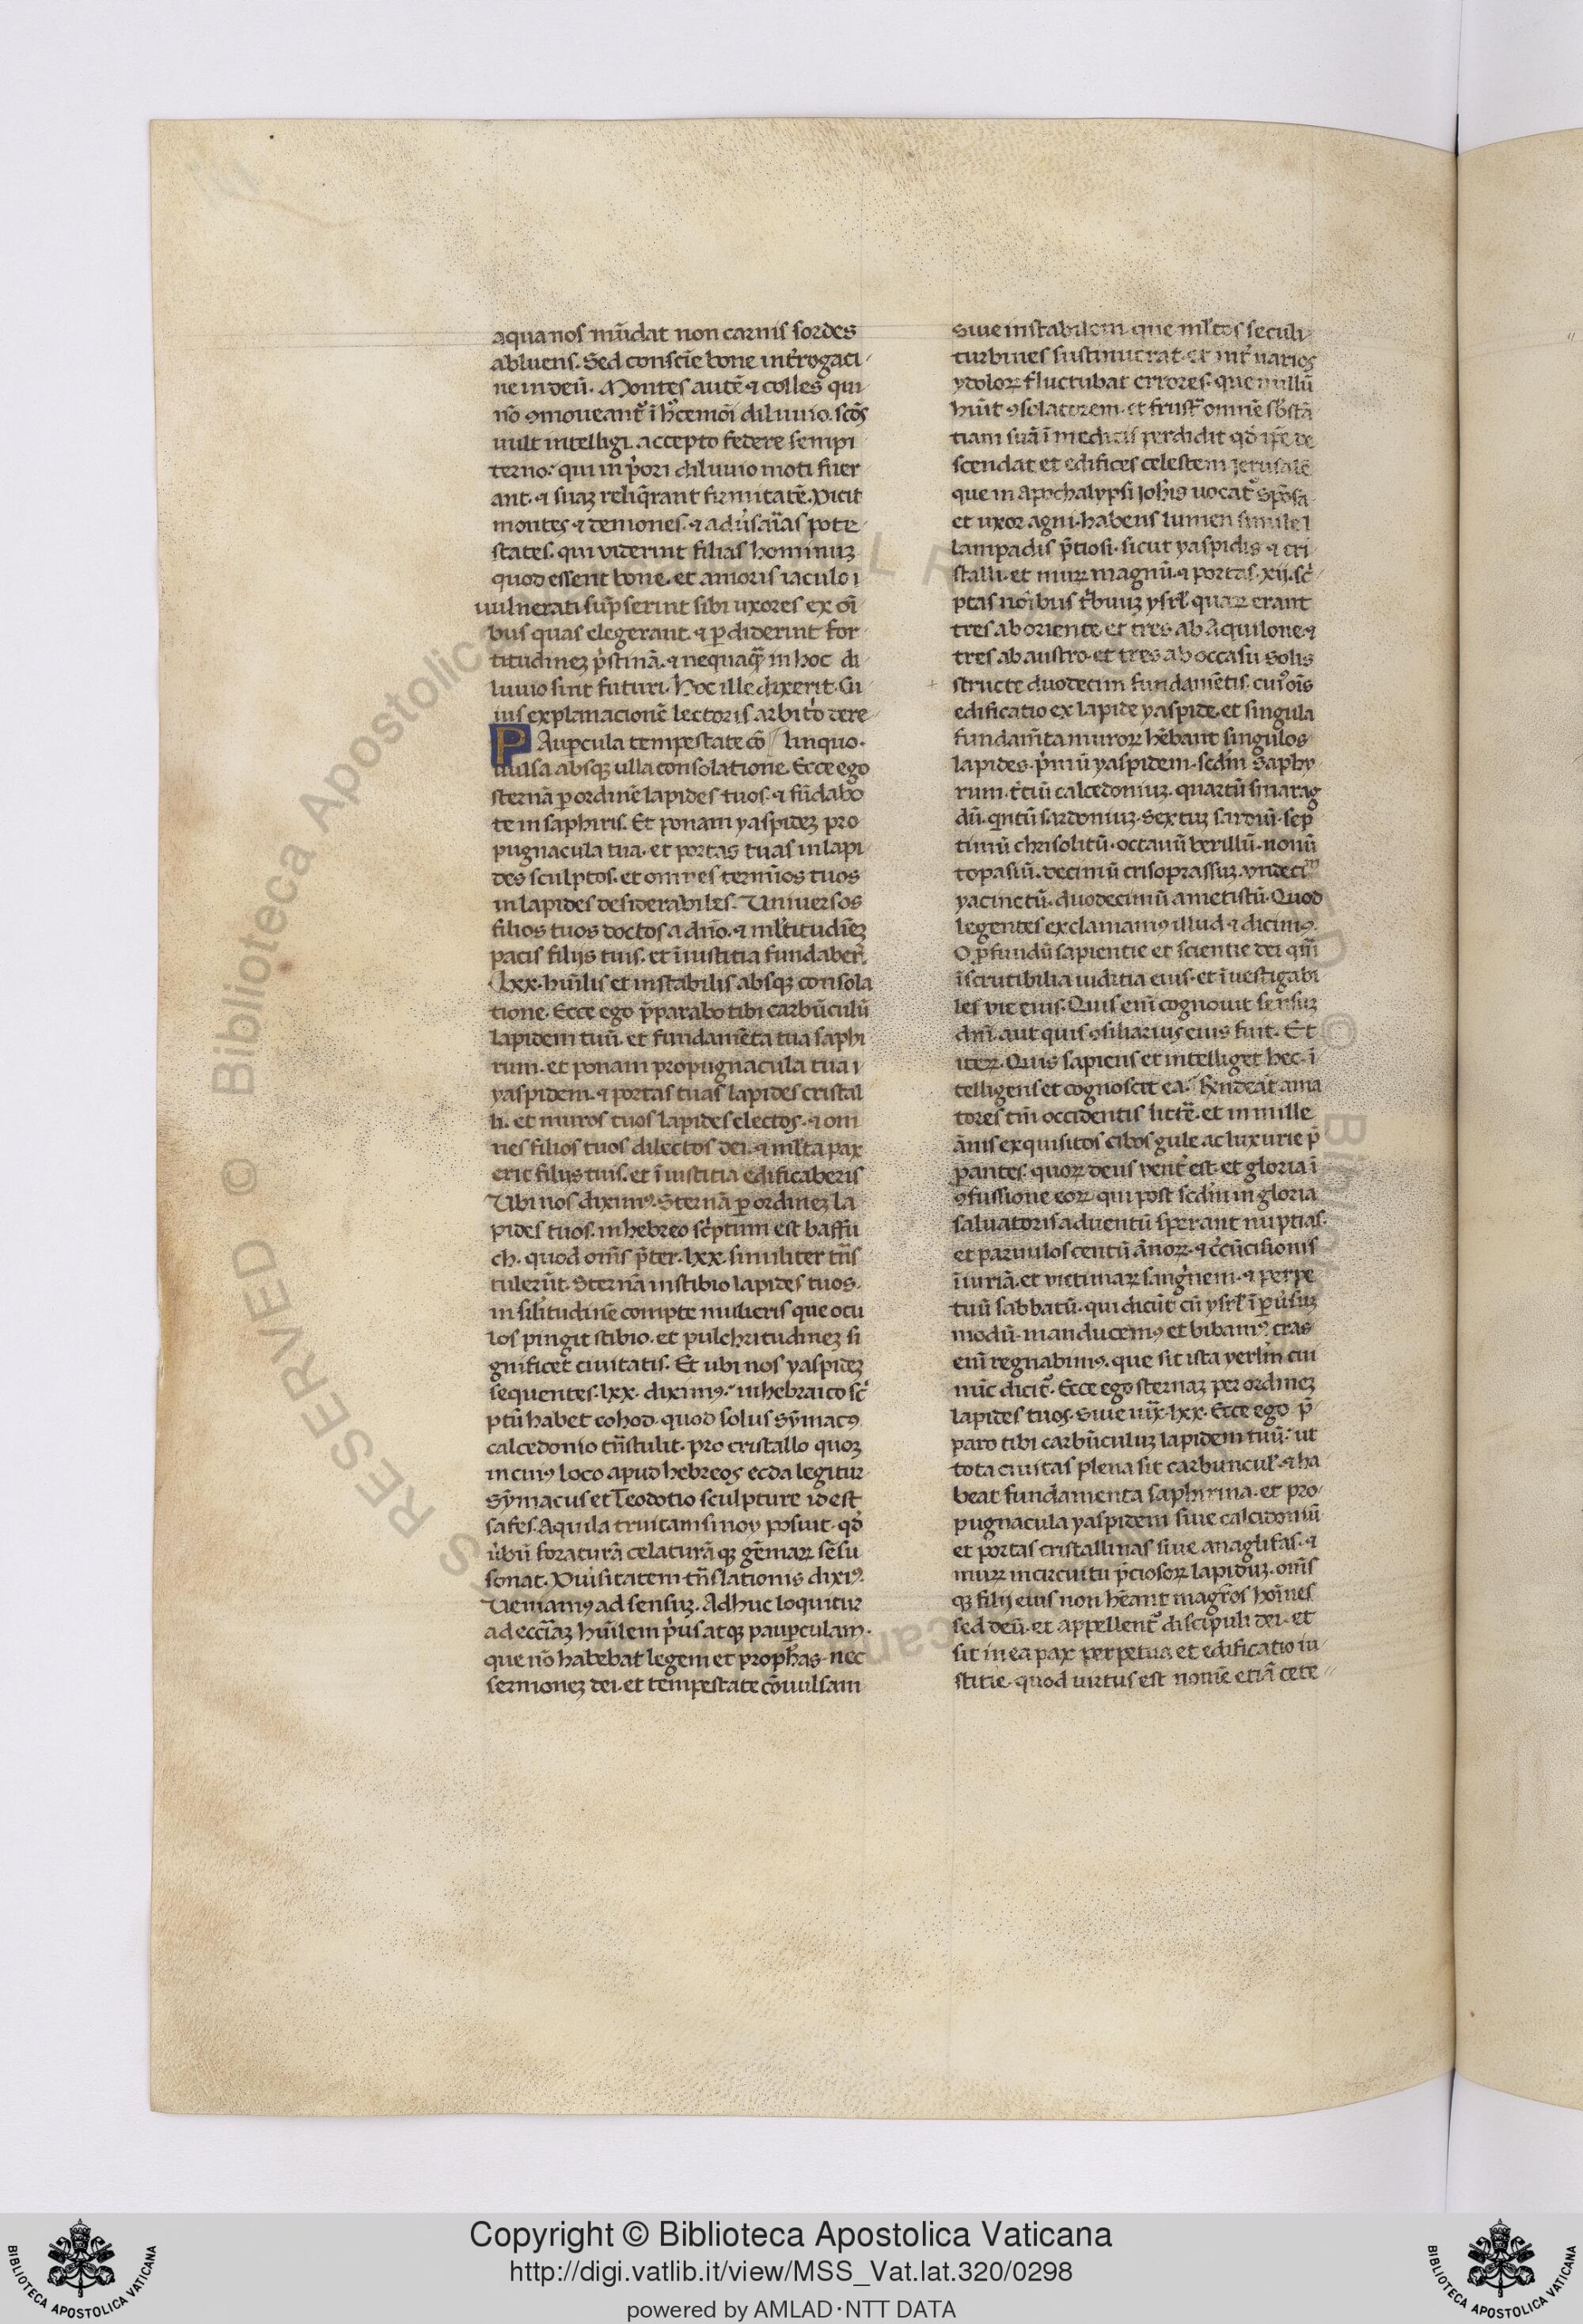 aqua nos mūdat non carnis sordes
abluens. Sed consciē bone int̓rogaci
ne in deū. Montes autē ⁊ colles qui
nō ꝯmoueant᷑ ī hꝰcemōi diluuio. scōs
uult intelligi. accepto federe sempi
terno: qui in p̓ori diluuio moti fuer
ant. ⁊ suaꝫ reliq̄rant firmitatē. Dicit
montes ⁊ demones. ⁊ adu̓saīas pote
states. qui viderint filias hominuꝫ
quod essent bone. et amoris iaculo ı
uulnerati sūpserint sibi uxores ex oī
bus quas elegerant. ⁊ ꝑdiderint for
titudineꝫ p̓stinā. ⁊ nequaq̄ꝫ in hoc di
luuio sint futuri. Hoc ille dixerit. Cu
ius explanacionē lectoris arbit̓o dere
PAuꝑcula tempestate cō // linquo.
uulsa absqꝫ ulla consolatione. Ecce ego
sternā ꝑ ordinē lapides tuos. ⁊ fūdabo
te in saphiris. Et ponam yaspideꝫ pro
pugnacula tua. et portas tuas in lapi
des sculptos. et omnes termīos tuos
in lapides desiderabiles. Vniuersos
filios tuos doctos a dn̄o. ⁊ ml̓titudīeꝫ
pacis filijs tuis. et ī iustitia fundaber̓.
lxx. hūilis et instabilis absqꝫ consola
tione. Ecce ego p̄parabo tibi carbūculū
lapidem tuū. et fundamēta tua saphi
rum. et ponam propugnacula tua ı
yaspidem. ⁊ portas tuas lapides cristal
li. et muros tuos lapides electos. ⁊ om
nes filios tuos dilectos dei. ⁊ ml̓ta pax
erit filijs tuis. et ī iustitia edificaberis
Vbi nos diximꝰ. Sternā ꝑ ordineꝫ la
pides tuos. in hebreo sc̓ptum est baffu
ch. quod om̄s p̄ter. lxx. similiter tn̄s
tulerūt. Sternā in stibio lapides tuos.
in silitudinē compte mulieris que ocu
los pingit stibio. et pulchritudineꝫ si
gnificet ciuitatis. Et ubi nos yaspideꝫ
sequentes. lxx. diximꝰ: in hebraico sc̓
ptū habet cohod. quod solus Sȳmacꝰ
calcedonio tn̄stulit. pro cristallo quoꝫ
in cuiꝰ loco apud hebreos ecda legitur
Sȳmacus et Teodotio sculpture id est
safes. Aquila truitanısinoy posuit. qd̓
u̓bū foraturā celaturā qꝫ gēmaꝝ sēsu
sonat. Diu̓sitatem tn̄slationis dixiꝰ.
Veniamꝰ ad sensuꝫ. Adhuc loquitur
ad eccl̄iaꝫ hūilem p̓us atqꝫ pauꝑculam.
que nō habebat legem et proph̄as. nec
sermoneꝫ dei. et tempestate cōuulsam
siue instabilem. que ml̓tos seculi
turbines sustinuerat. et int̓ uarios
ydoloꝝ fluctubat errores. que nullū
hūit ꝯsolatorem. et frust̓ omnē sb̓stā
tiam suā ī medicis perdidit qd̓ ip̄e de
scendat et edifices celestem Jerusalē
que in Apochalypsi Joh̄is uocat᷑ sp̄osa
et uxor agni. habens lumen simile l
lampadis p̄tiosi. sicut yaspidis ⁊ cri
stalli. et muꝝ magnū. ⁊ portas. xij. sc̓
ptas noībus t̓buuꝫ ysrl̓. quaꝝ erant
tres ab oriente. et tres ab Aquilone ⁊
tres ab austro. et tres ab occasu solis
structe duodecim fundamētis. cuiꝰ oīs
edificatio ex lapide yaspide. et singula
fundam̄ta muroꝝ hēbant singulos
lapides. p̓mū yaspidem. scd̄m Saphy
rum. t̓ciū calcedoniuꝫ. quartū smarag
dū. q̓ntū sardoniuꝫ. Sextuꝫ sardiū. sep
timū chrisolitū. octauū berillū. nonū
topasiū. decimū crisoprassuꝫ. vndecıᵐ
yacinctū. duodecimū ametistū. Quod
legentes exclamamꝰ illud ⁊ dicimꝰ.
O ꝓfundū sapientie et scientie dei qm̄
īscrutibilia iuditia eius. et īuestigabi
les vie eius. Quis enī cognouit sensuꝫ
dn̄i. aut quis ꝯsiliarius eius fuit. Et
iteꝝ. Quis sapiens et intelliget hec. ī
telligens et cognoscit ea. Hrīdeāt ama
tores tm̄ occidentis litt̄e. et in mille
ānis exquisitos cibos gule ac luxurie p̄
ꝑantes. quoꝝ deus vent̓ est. et gloria ī
ꝯfussione eoꝝ. qui post scd̄m in gloria
saluatoris aduentū sperant nuptias.
et paruulos centū ānoꝝ. ⁊ c̓cūcisionis
īiuriā. et victimaꝝ sang̓nem. ⁊ perpe
tuū sabbatū. qui dicūt cū ysrl̓ ī ꝑu̓suꝫ
modū. manducemꝰ et bibamꝰ. cras
enī regnabimꝰ. que sit ista yerl̄m cui
nūc dicit᷑. Ecce ego sternaꝫ per ordineꝫ
lapides tuos. siue iux̄. lxx. Ecce ego p̄
paro tibi carbūculuꝫ lapidem tuū: ut
tota ciuitas plena sit carbuncul̓. ⁊ ha
beat fundamenta saphirina. et pro
pugnacula yaspidem siue calcidoniū
et portas cristallinas siue anaglifas. ⁊
muꝝ in circuitu p̄ciosoꝝ lapiduꝫ. om̄s
qꝫ filij eius non hēant magr̄os hoīnes
sed deū. et appellent᷑ discipuli dei. et
sit in ea pax perpetua et edificatio iu
stitie. quod uirtus est nomē etiā cete
Copyright © Biblioteca Apostolica Vaticana
http://digi.vatlib.it/view/MSS_Vat.lat.320/0298
powered by AMLAD·NTT DATA